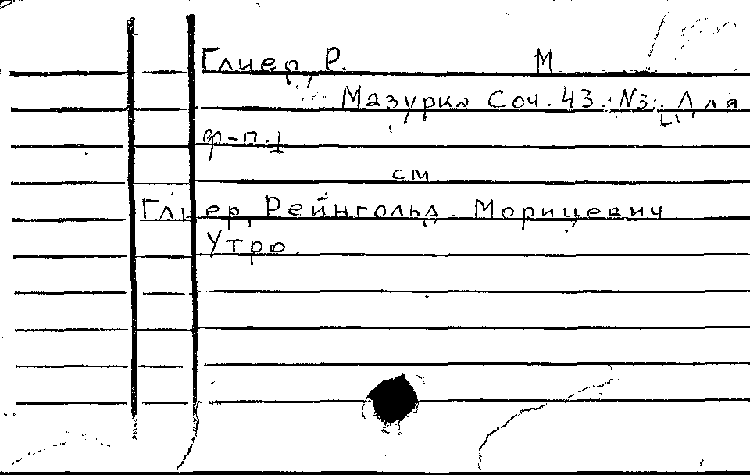 Глиер, Р. М.
Мазурка Соч. 43. №3. Для
ф-п.
см
Глиер, Рейнгольд Морицевич
Утро.